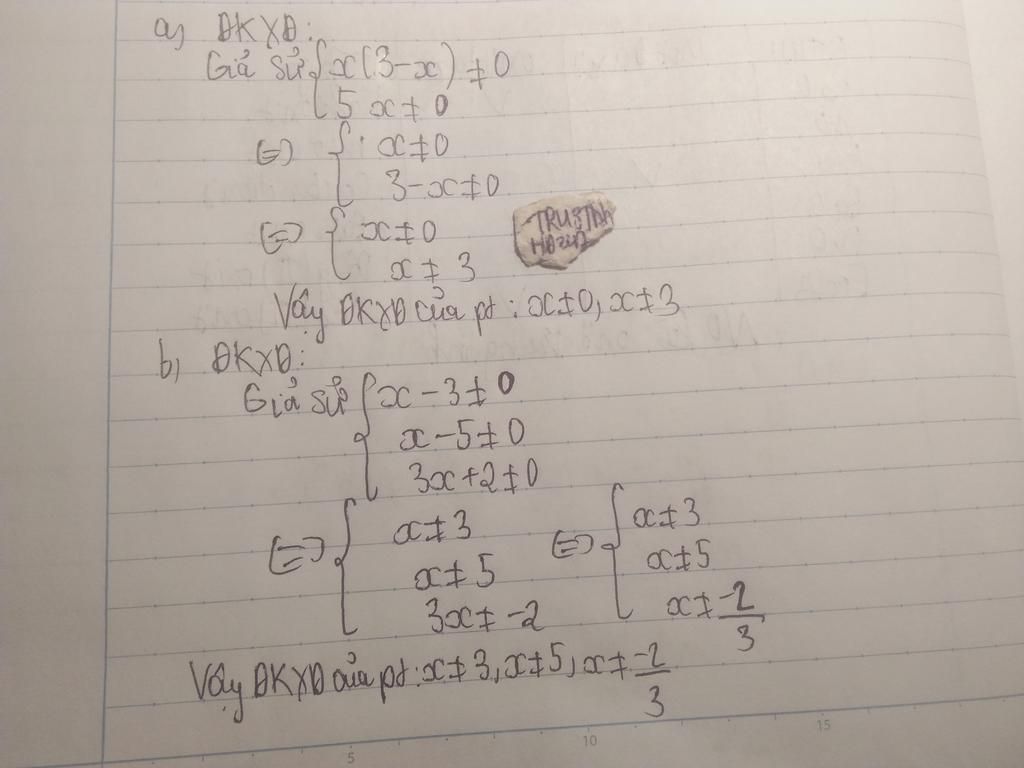 a) ĐKXĐ:
Giả sử { x(3-x) ≠ 0
5x ≠ 0
⇔ { x ≠ 0
3-x ≠ 0
⇔ { x ≠ 0
x ≠ 3
Vậy ĐKXĐ của pt: x≠0, x≠3
b) ĐKXĐ:
Giả sử { x-3 ≠ 0
x-5 ≠ 0
3x+2 ≠ 0
⇔ { x ≠ 3 ⇔ { x ≠ 3
x ≠ 5 x ≠ 5
3x ≠ -2 x ≠ -2/3
Vậy ĐKXĐ của pt: x≠3, x≠5, x≠ -2/3
5 10 15